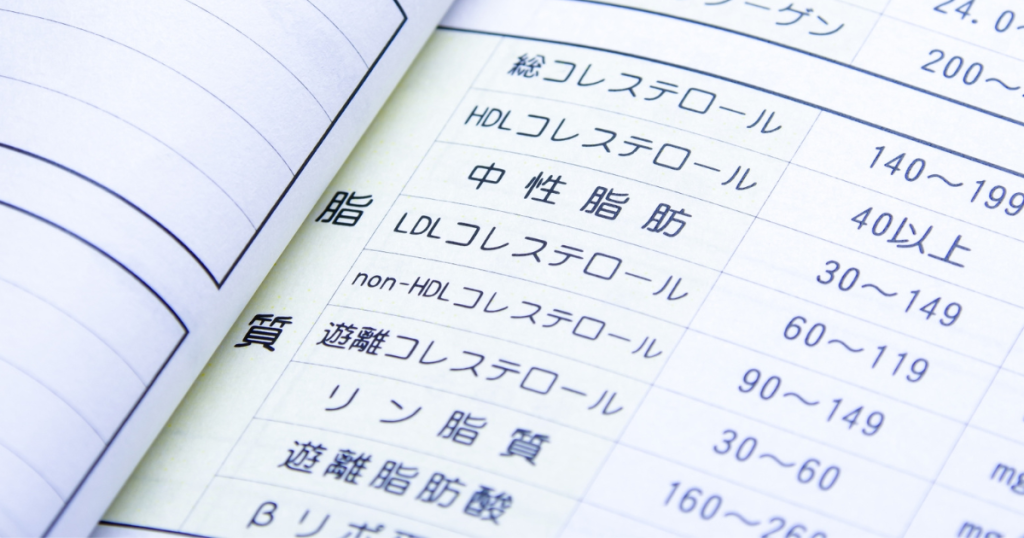 24.0～
ーゲン 200～
脂質
総コレステロール 140～199
HDLコレステロール 40以上
中性脂肪 30～149
LDLコレステロール 60～119
non-HDLコレステロール 90～149
遊離コレステロール 30～60
リン脂質 160～260
遊離脂肪酸
βリポ